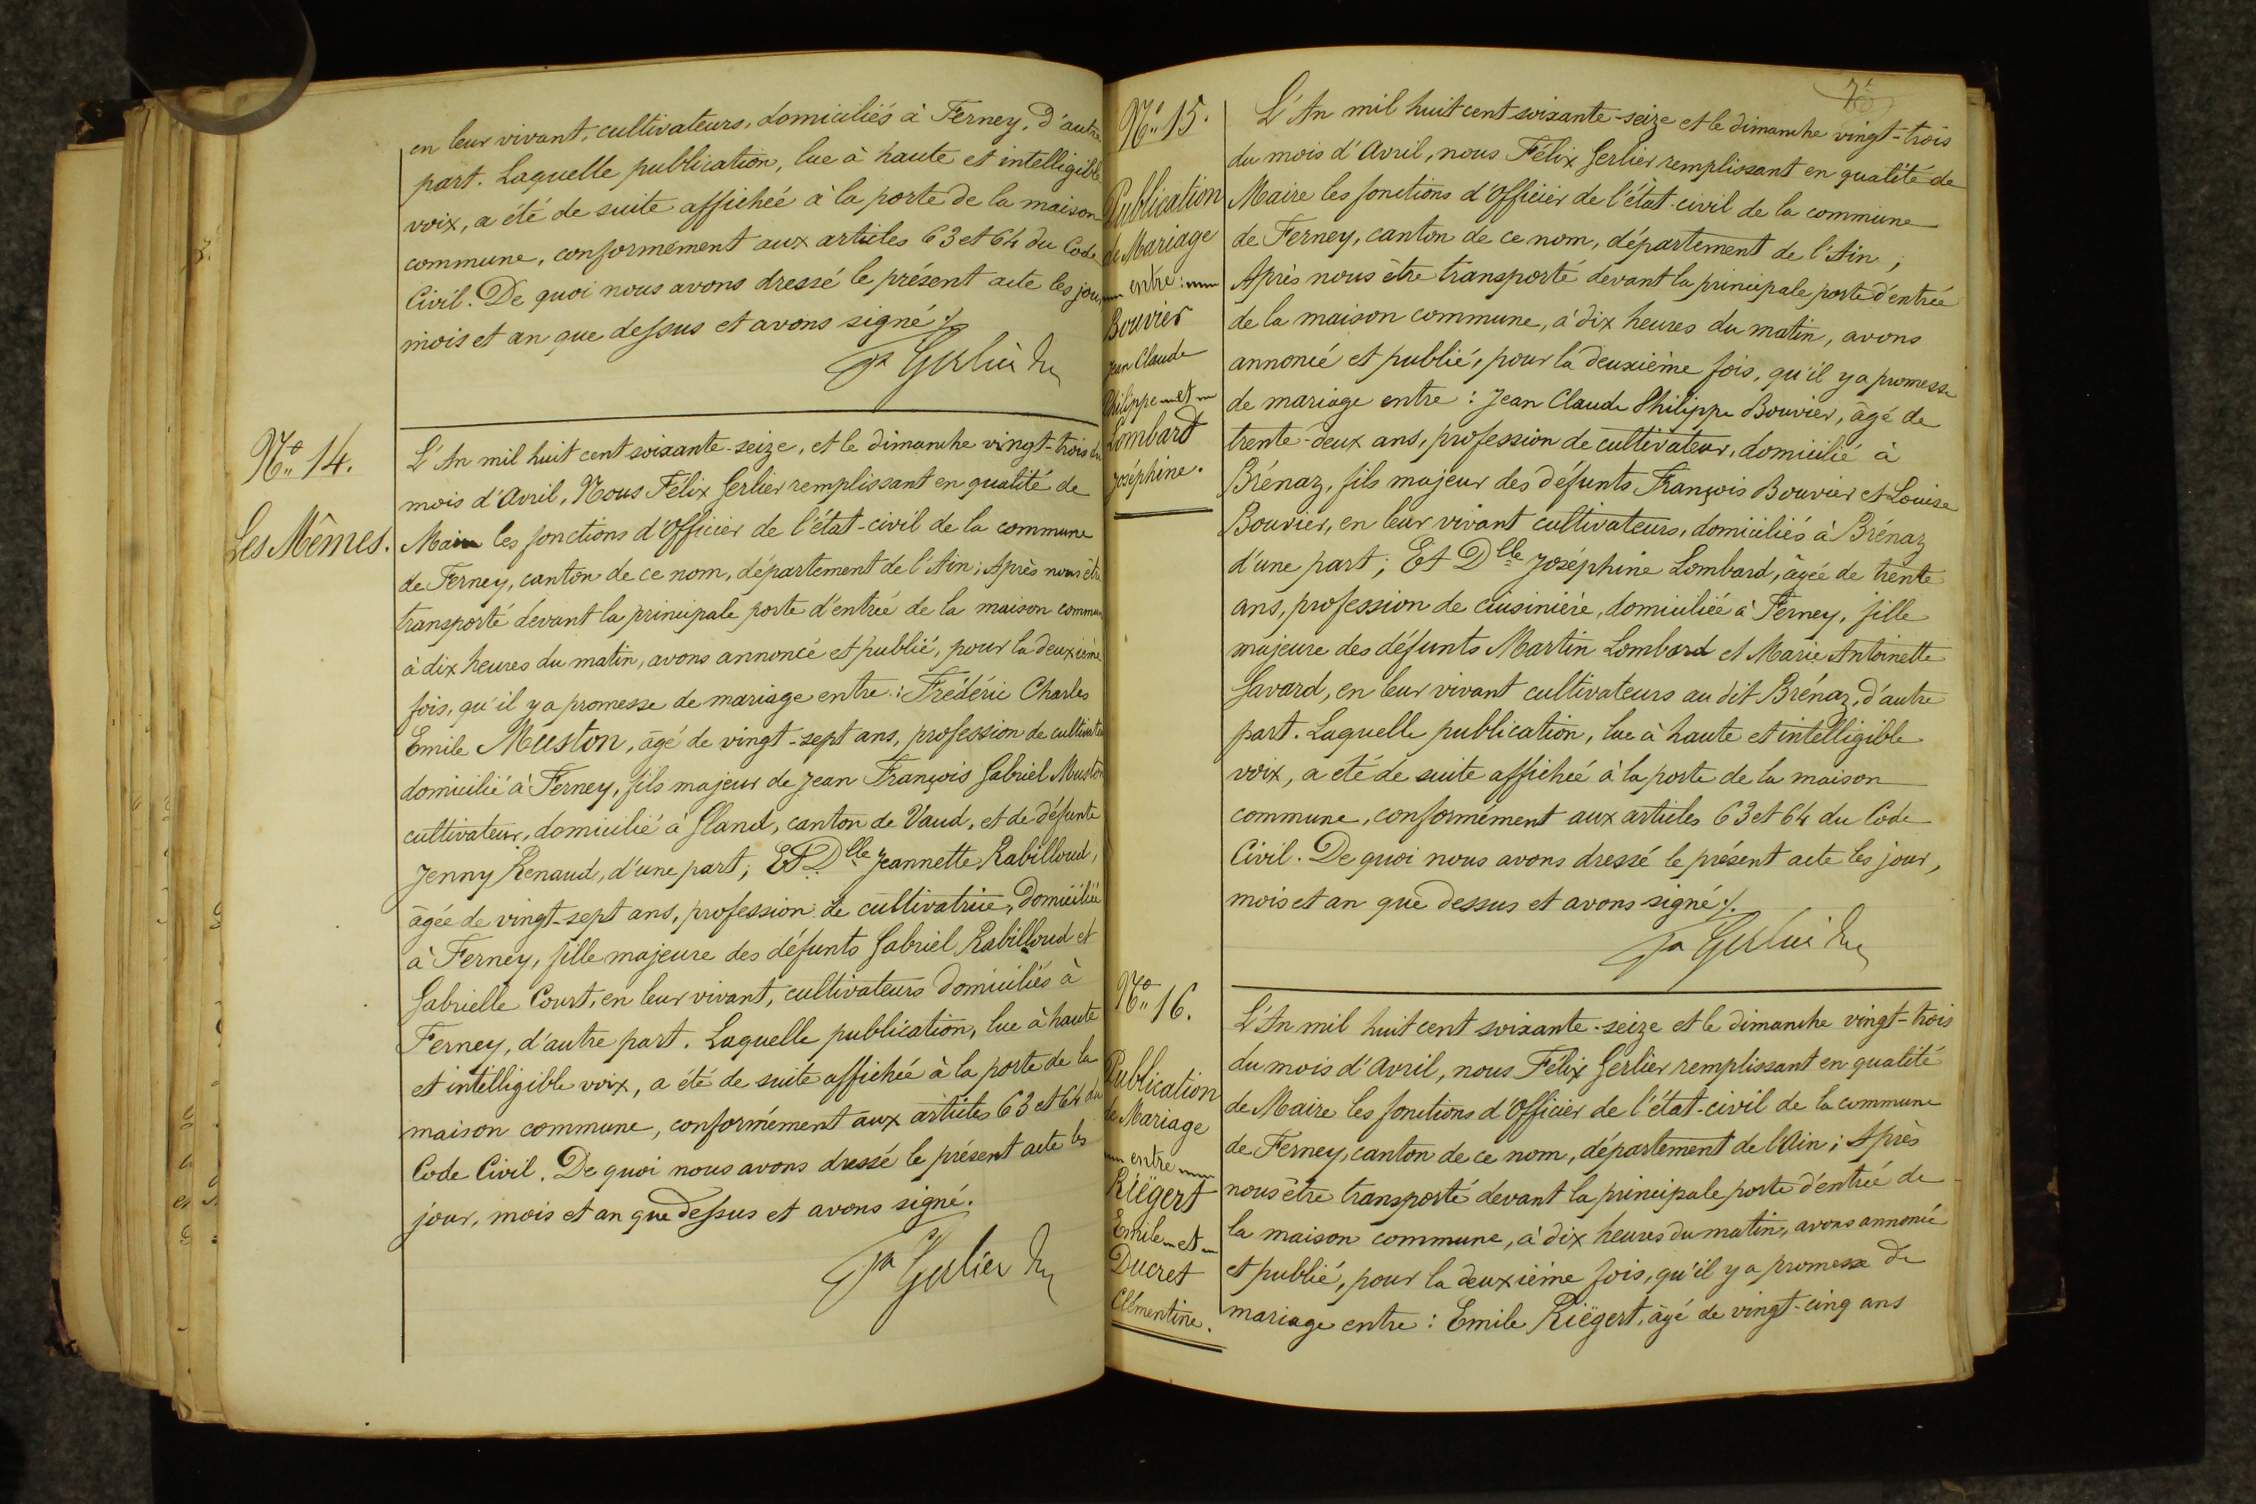 en leur vivant, cultivateurs, domiciliés à Ferney, d'autre
part. Laquelle publication, lue à haute et intelligible
voix, a été de suite affichée à la porte de la maison
commune, conformément aux articles 63 et 64 du Code
Civil. De quoi nous avons dressé le présent acte les jour,
mois et an que dessus et avons signé ./.
Gerlier
N° 14.
Les Mêmes.
L'An mil huit cent soixante-seize, et le dimanche vingt-trois du
mois d'Avril, Nous Félix Gerlier remplissant en qualité de
Maire les fonctions d'Officier de l'état-civil de la commune
de Ferney, canton de ce nom, département de l'Ain; Après nous être
transporté devant la principale porte d'entrée de la maison commune
à dix heures du matin, avons annoncé et publié, pour la deuxième
fois, qu'il y a promesse de mariage entre : Frédéric Charles
Emile Muston, âgé de vingt-sept ans, profession de cultivateur
domicilié à Ferney, fils majeur de Jean François Gabriel Muston
cultivateur, domicilié à Gland, canton de Vaud, et de défunte
Jenny Renaud, d'une part; Et Dlle Jeannette Rabilloud,
âgée de vingt-sept ans, profession de cultivatrice, domiciliée
à Ferney, fille majeure des défunts Gabriel Rabilloud et
Gabrielle Court, en leur vivant, cultivateurs domiciliés à
Ferney, d'autre part. Laquelle publication, lue à haute
et intelligible voix, a été de suite affichée à la porte de la
maison commune, conformément aux articles 63 et 64 du
Code Civil. De quoi nous avons dressé le présent acte les
jour, mois et an que dessus et avons signé.
Gerlier
N° 15.
Publication
de Mariage
entre :
Bouvier
Jean Claude
Philippe et
Lombard
Joséphine.
L'An mil huit cent soixante-seize et le dimanche vingt-trois
du mois d'Avril, nous Félix Gerlier remplissant en qualité de
Maire les fonctions d'Officier de l'état-civil de la commune
de Ferney, canton de ce nom, département de l'Ain;
Après nous être transporté devant la principale porte d'entrée
de la maison commune, à dix heures du matin, avons
annoncé et publié, pour la deuxième fois, qu'il y a promesse
de mariage entre : Jean Claude Philippe Bouvier, âgé de
trente-deux ans, profession de cultivateur, domicilié à
Brénaz, fils majeur des défunts François Bouvier et Louise
Bouvier, en leur vivant cultivateurs, domiciliés à Brénaz
d'une part; Et Dlle Joséphine Lombard, âgée de trente
ans, profession de cuisinière, domiciliée à Ferney, fille
majeure des défunts Martin Lombard et Marie Antoinette
Savard, en leur vivant cultivateurs au dit Brénaz, d'autre
part. Laquelle publication, lue à haute et intelligible
voix, a été de suite affichée à la porte de la maison
commune, conformément aux articles 63 et 64 du Code
Civil. De quoi nous avons dressé le présent acte les jour,
mois et an que dessus et avons signé ./.
Gerlier
N° 16.
Publication
de Mariage
entre
Riëgert
Emile et
Ducret
Clémentine.
L'An mil huit cent soixante-seize et le dimanche vingt-trois
du mois d'Avril, nous Félix Gerlier remplissant en qualité
de Maire les fonctions d'Officier de l'état-civil de la commune
de Ferney, canton de ce nom, département de l'Ain; Après
nous être transporté devant la principale porte d'entrée de
la maison commune, à dix heures du matin, avons annoncé
et publié, pour la deuxième fois, qu'il y a promesse de
mariage entre : Emile Riëgert, âgé de vingt-cinq ans